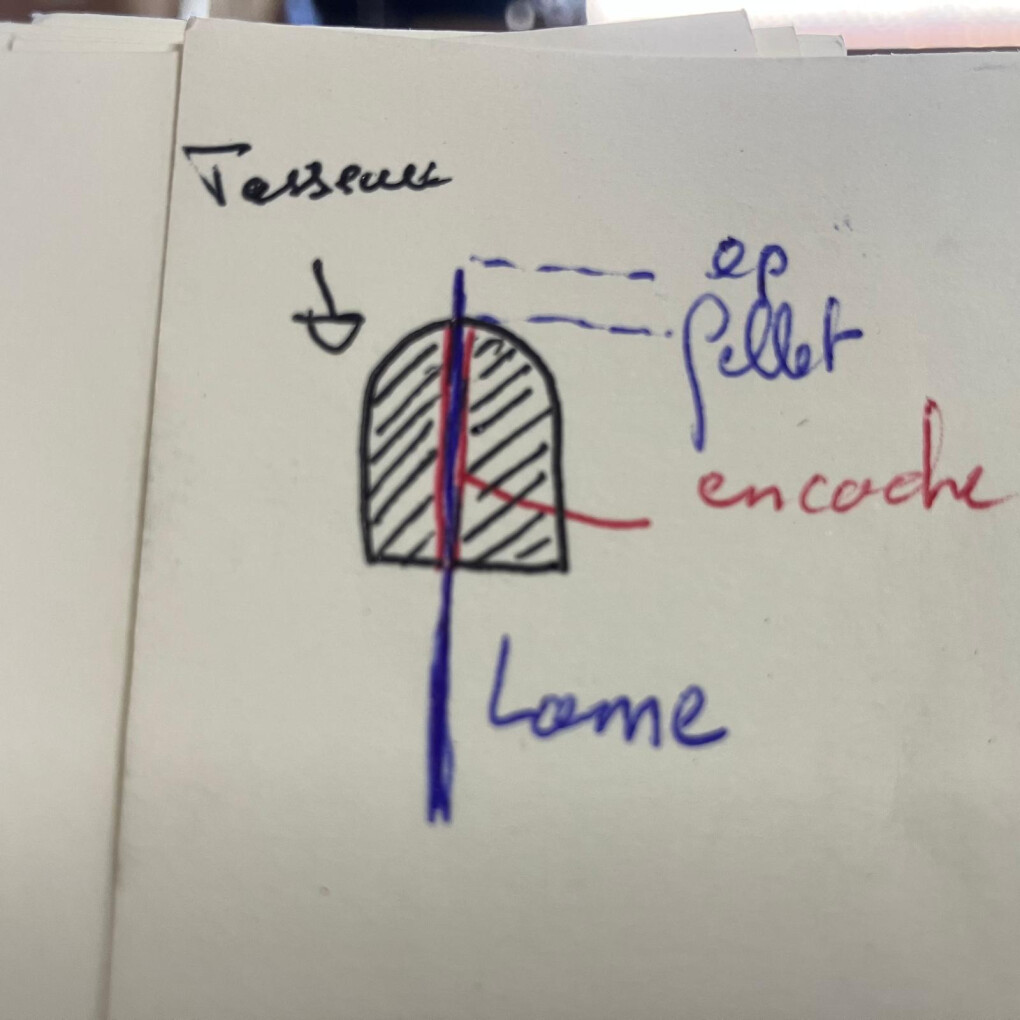 Tasseau
ep
pellet
encoche
Lame